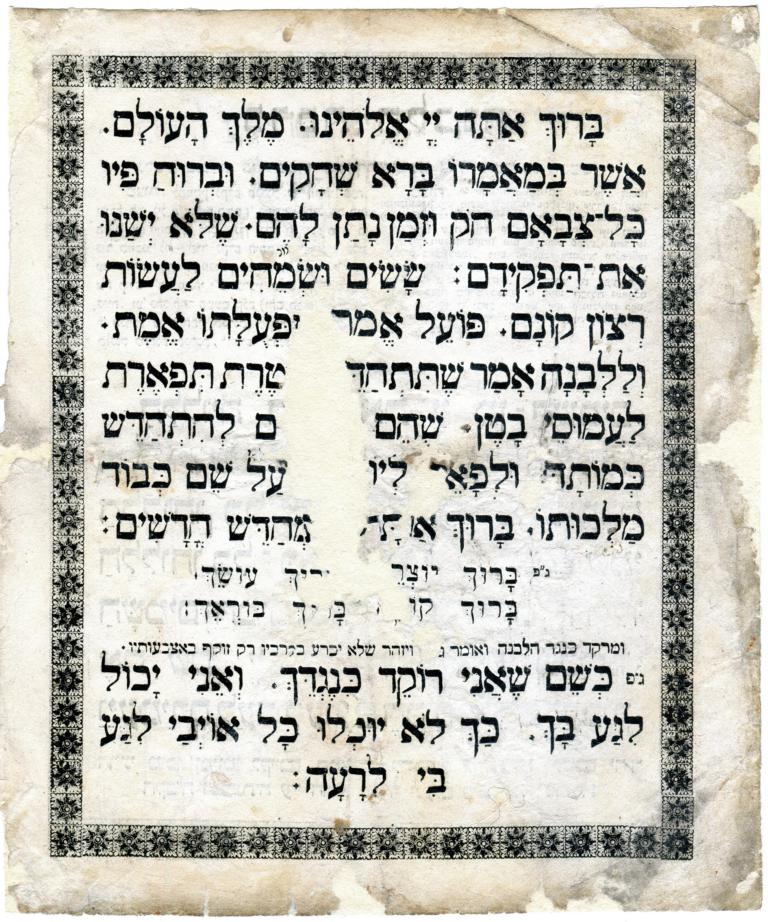 בָּרוּךְ אַתָּה יְיָ אֱלֹהֵינוּ. מֶלֶךְ הָעוֹלָם.
אֲשֶׁר בְּמַאֲמָרוֹ בָּרָא שְׁחָקִים. וּבְרוּחַ פִּיו
כָּל־צְבָאָם חֹק וּזְמַן נָתַן לָהֶם. שֶׁלֹּא יְשַׁנּוּ
אֶת־תַּפְקִידָם: שָׂשִׂים וּשְׂמֵחִים לַעֲשׂוֹת
רְצוֹן קוֹנָם. פּוֹעֵל אֱמֶת.
וְלַלְּבָנָה אָמַר תִּפְאֶרֶת
לַעֲמוּסֵי בָטֶן. שֶׁהֵם לְהִתְחַדֵּשׁ
כְּמוֹתָהּ וּלְפָאֵר עַל שֵׁם כְּבוֹד
מַלְכוּתוֹ. בָּרוּךְ מְחַדֵּשׁ חֳדָשִׁים:
ג"פ בָּרוּךְ עוֹשֵׂךְ.
בָּרוּךְ בּוֹרְאֵךְ:
ומרקד כנגד הלבנה ואומר ויזהר שלא יכרע בברכיו רק זוקף באצבעותיו.
ג"פ כְּשֵׁם שֶׁאֲנִי רוֹקֵד כְּנֶגְדֵּךְ. וְאֵנִי יָכוֹל
לִגַּע בָּךְ. כַּךְ לֹא יוּכְלוּ כָּל אוֹיְבַי לִגַּע
בִּי לְרָעָה: